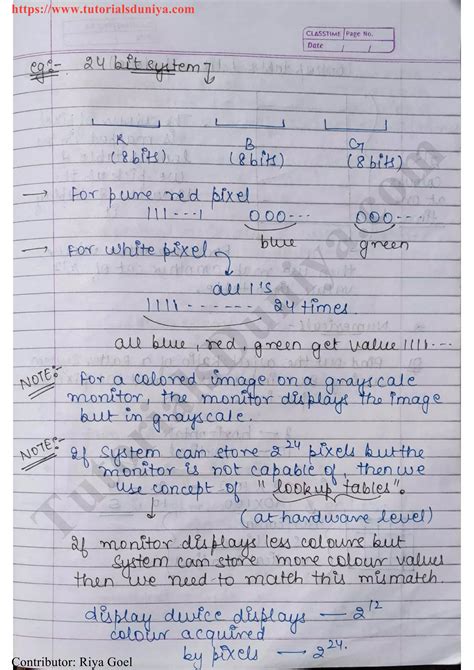 https://www.tutorialsduniya.com
CLASSTIME Page No.
Date / /
eg:- 24 bit system
R B G
(8bits) (8bits) (8bits)
→ For pure red pixel
111---1 000--- 000---
blue green
→ For white pixel
all 1's
1111 ------- 24 times.
all blue, red, green get value 1111---
NOTE:- For a colored image on a grayscale
monitor, the monitor displays the image
but in grayscale.
NOTE:- If system can store 2^24 pixels but the
monitor is not capable of, then we
use concept of "lookup tables".
(at hardware level)
If monitor displays less colours but
system can store more colour values
then we need to match this mismatch.
display device displays — 2^12
colour acquired
by pixels — 2^24.
TutorialsDuniya.com
Contributor: Riya Goel